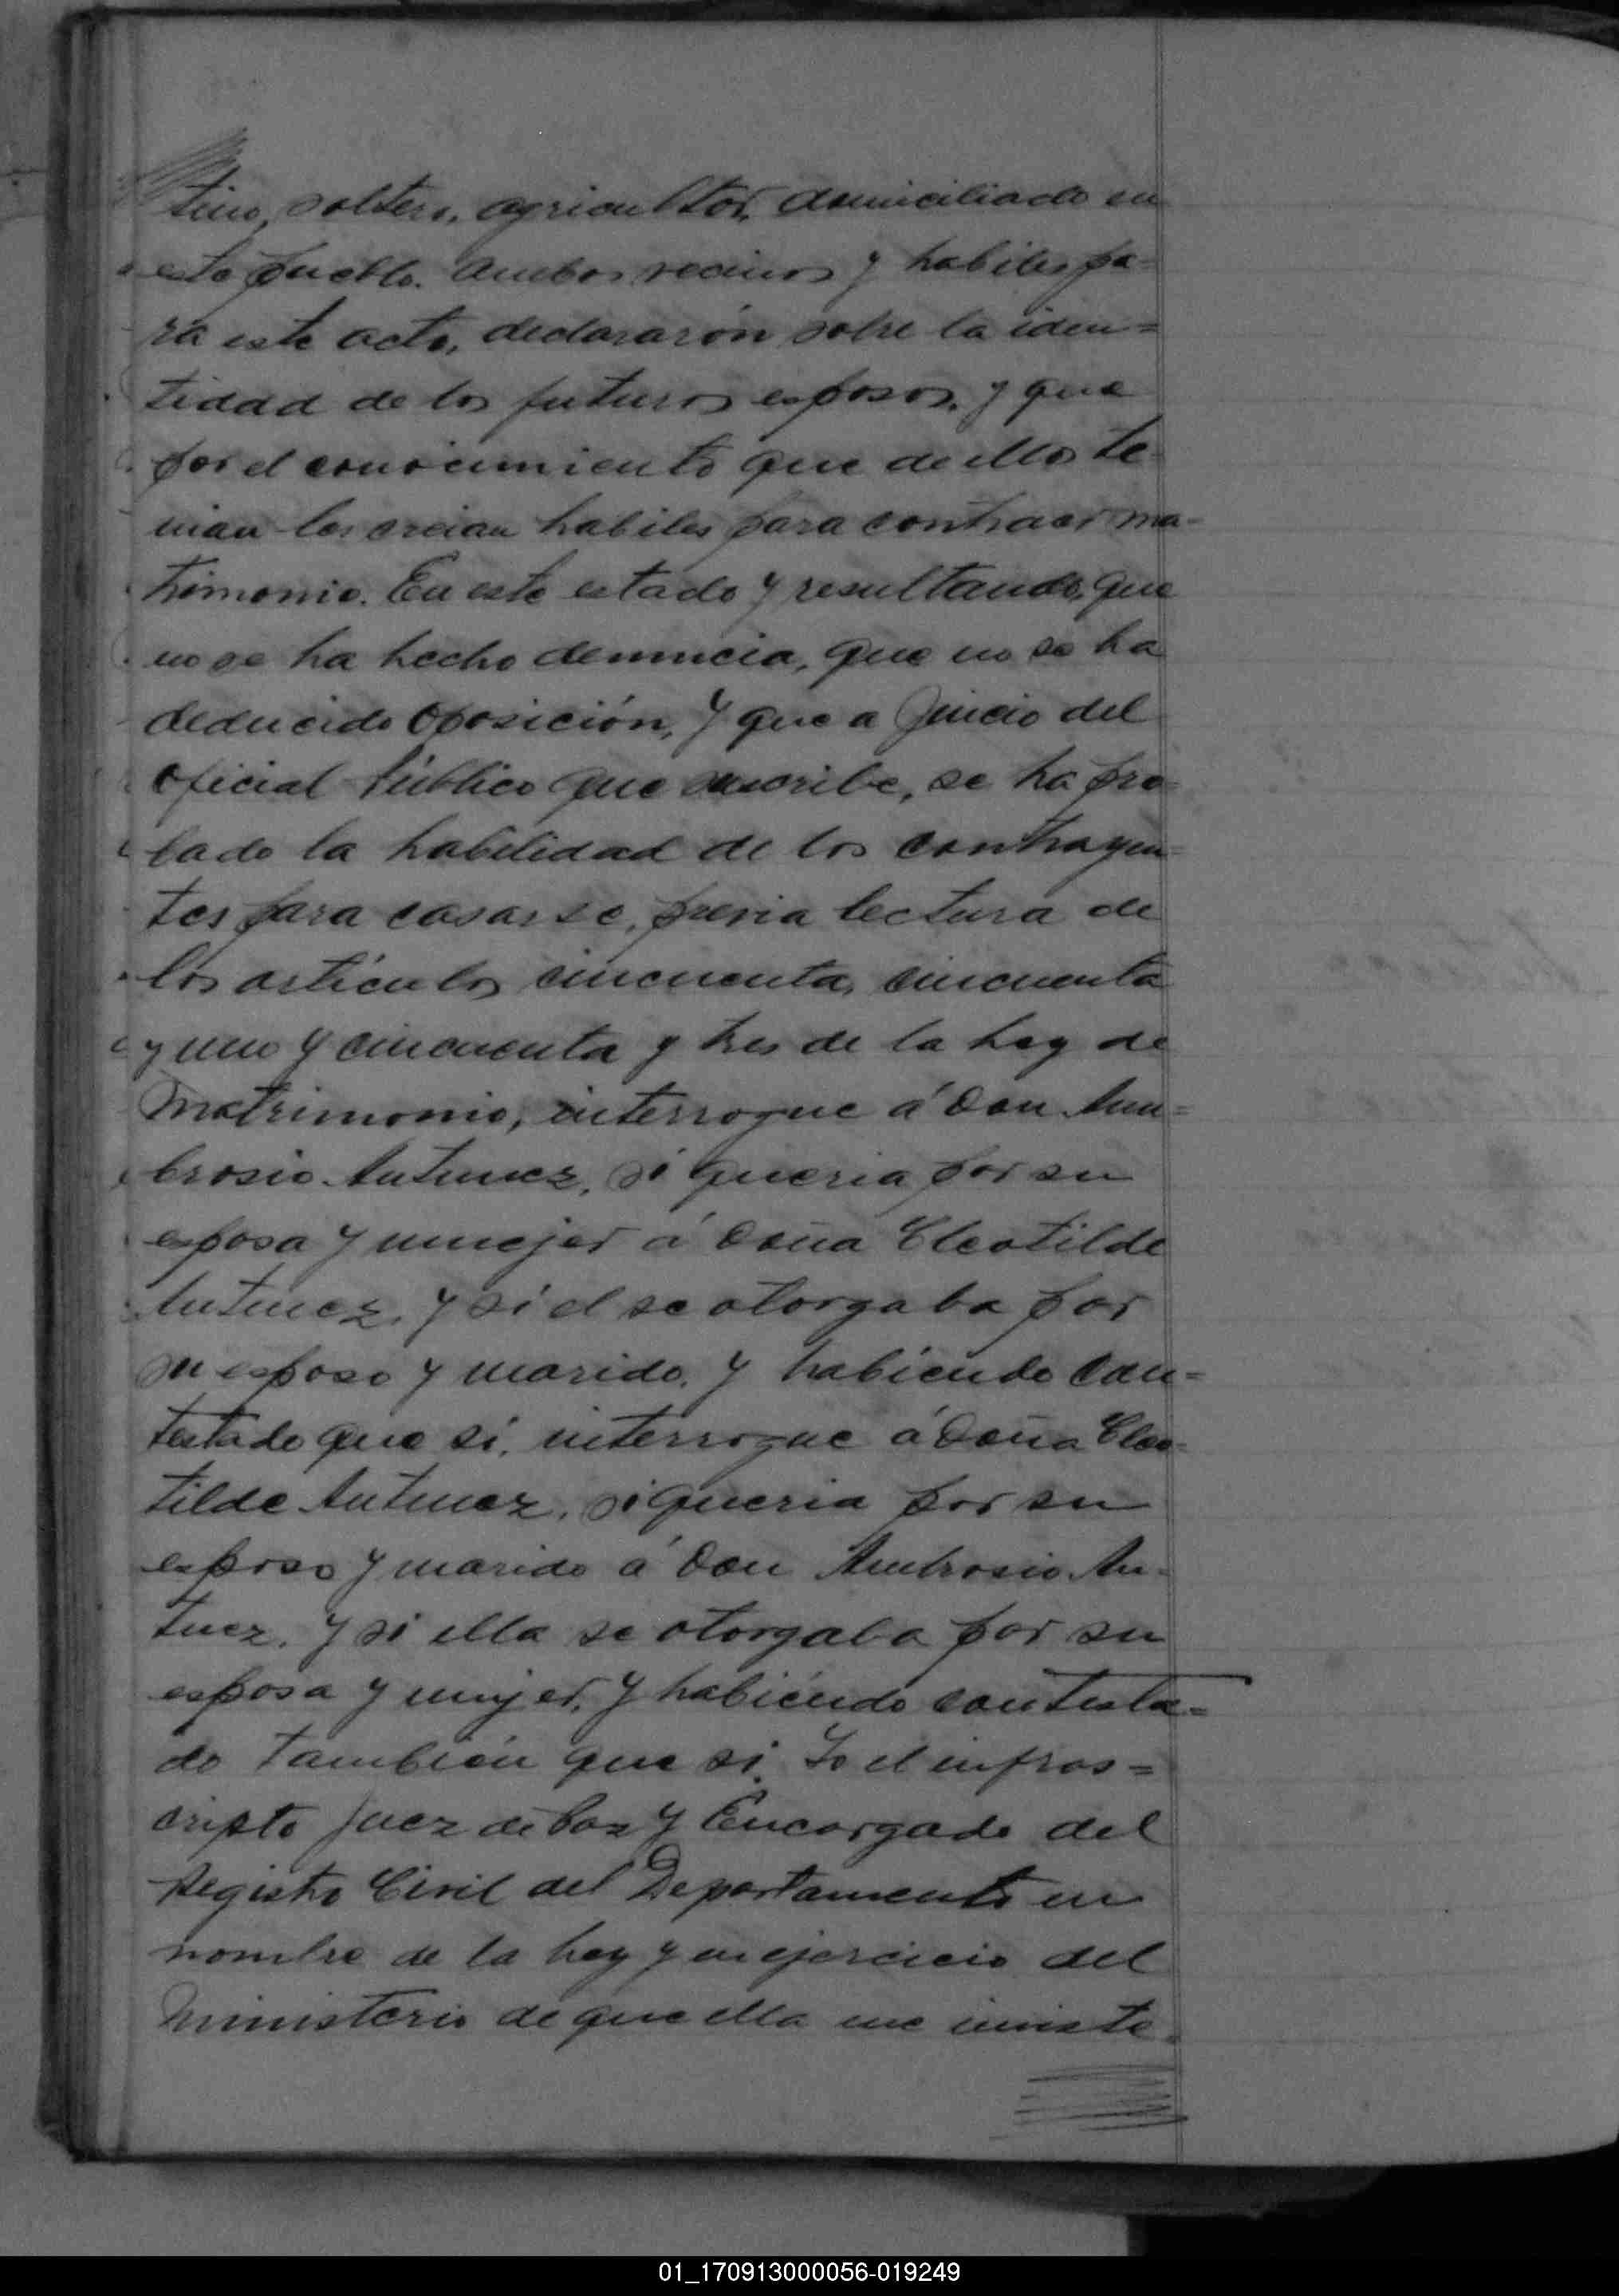 tino, soltero, agricultor, domiciliado en
este pueblo. Ambos vecinos y habiles pa-
ra este acto, declararón sobre la iden=
tidad de los futuros esposos, y que
por el conocimiento que de ellos te-
nian los creian habiles para contraer ma-
trimonio. En este estado y resultando, que
no se ha hecho denuncia, que no se ha
deducido oposición, y que a Juicio del
oficial Público que suscribe, se ha pro-
bado la habilidad de los contrayen=
tes para casarse, previa lectura de
los artículos cincuenta, cincuenta
y uno y cincuenta y tres de la Ley de
Matrimonio, interrogue á Don Am=
brosio Antunez, si queria por su
esposa y mucjer á Doña Cleotilde
Antunez, y si el se otorgaba por
su esposo y marido, y habiendo con=
testado que si, interrogue á Doña Cleo-
tilde Antunez, si queria por su
esposo y marido á Don Ambrosio An-
tuez, y si ella se otorgaba por su
esposa y mujer, y habiéndo contesta=
do también que si. Yo el infras=
cripto Juez de Paz y Encargado del
Registro Civil del Departamento en
nombre de la Ley y en ejercicio del
Ministerio de que ella me inviste.
01_170913000056-019249